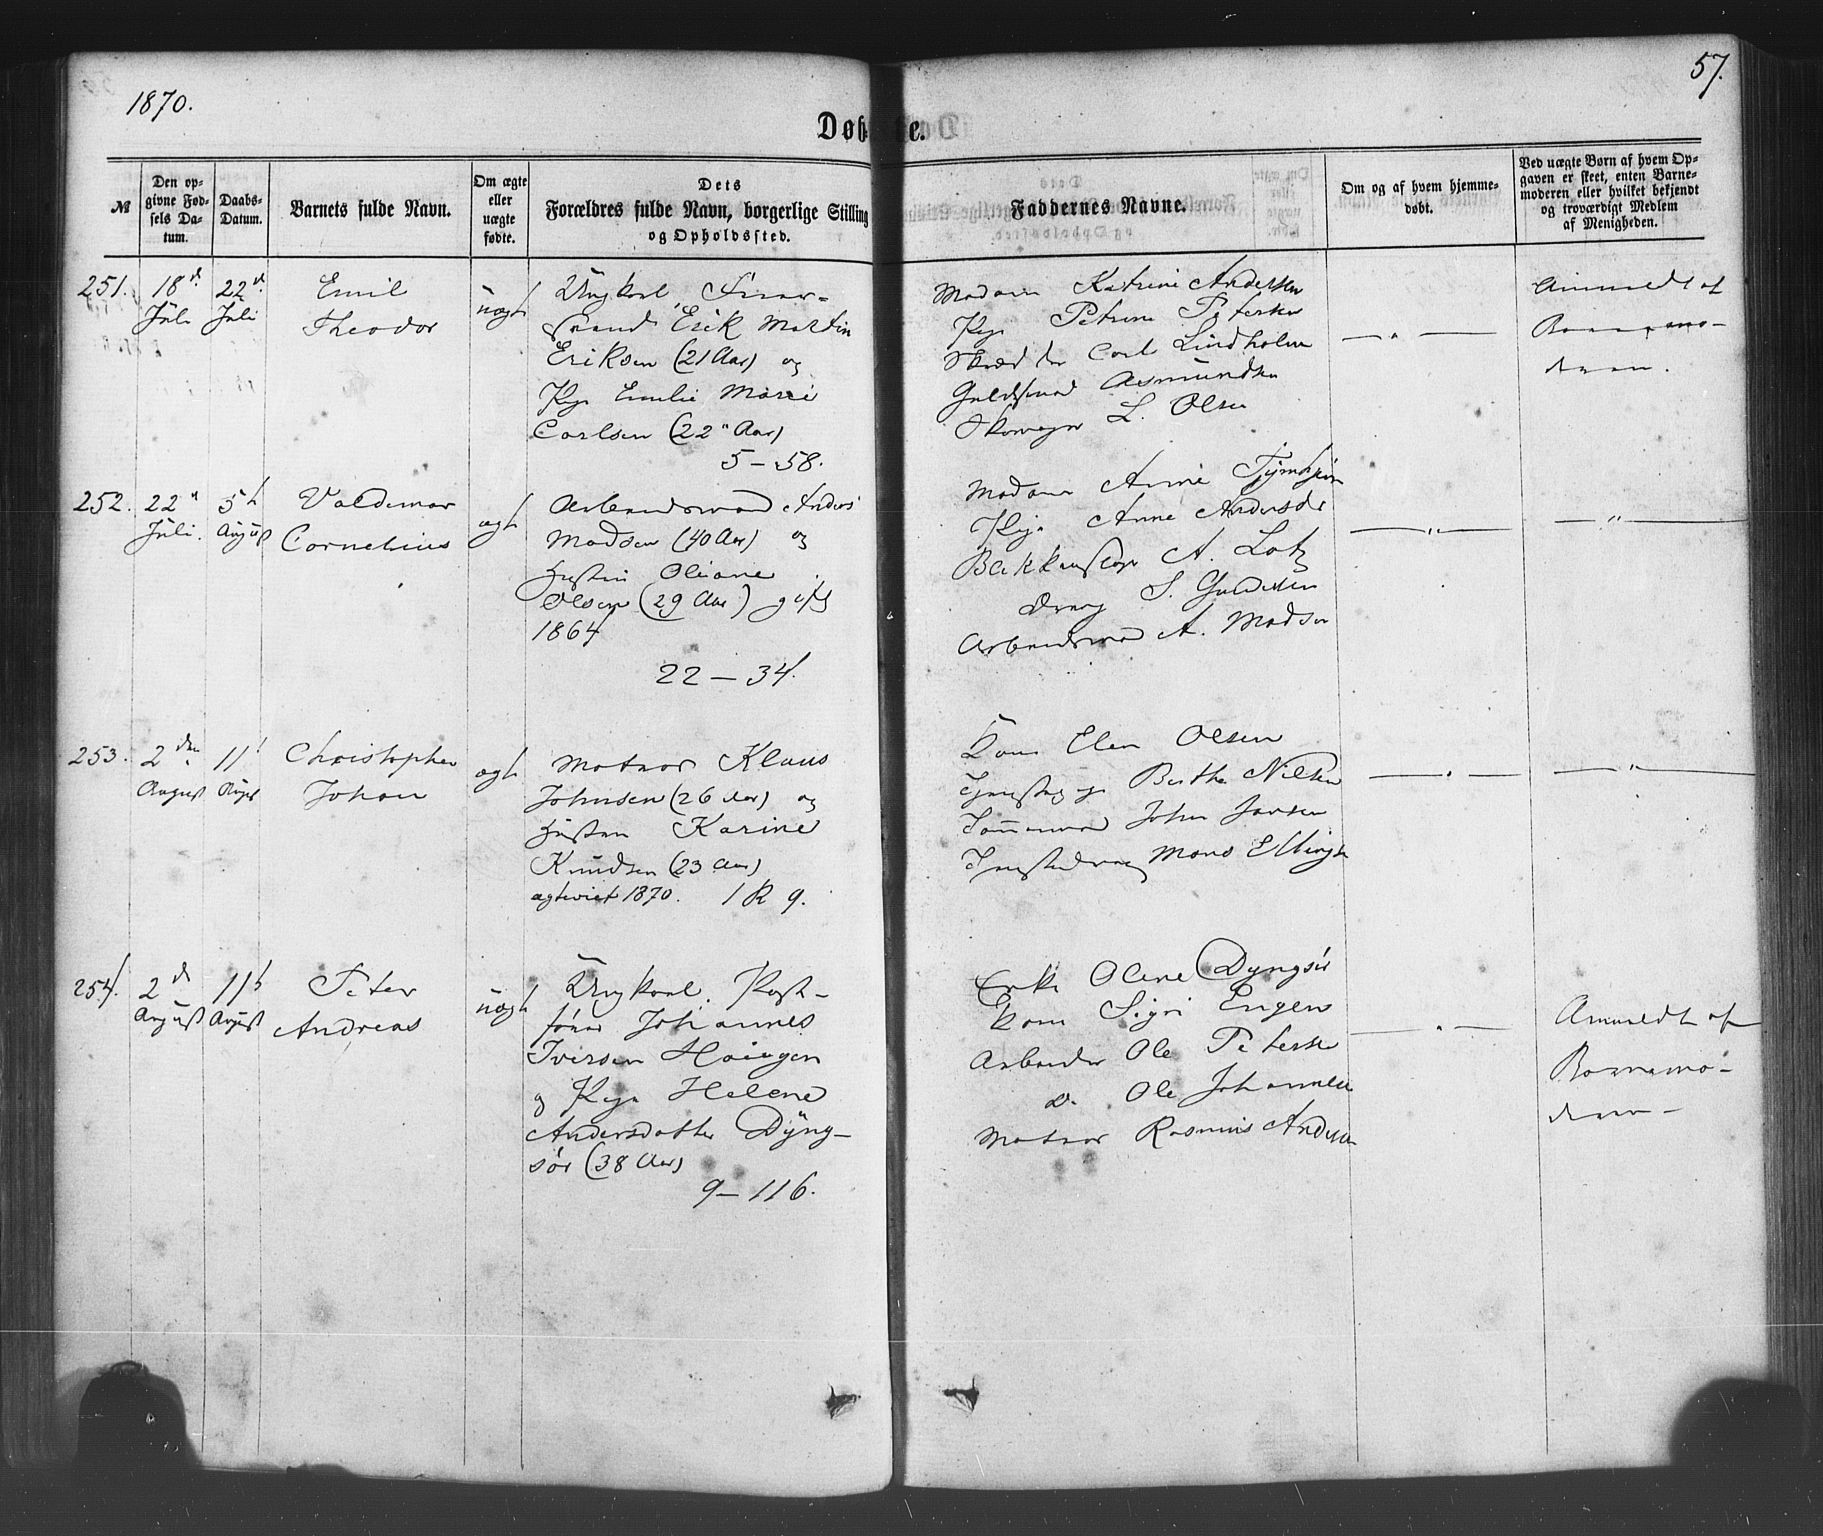 1870.
57.
Døb
e.
№
Den op-
givne Fød-
sels Da-
tum.
Daabs-
Datum.
Barnets fulde Navn.
Om ægte
eller
uægte
fødte.
Dets
Forældres fulde Navn, borgerlige Stilling
og Opholdssted.
Faddernes Navne.
Om og af hvem hjemme-
døbt.
Ved uægte Børn af hvem Op-
gaven er skeet, enten Barne-
moderen eller hvilket bekjendt
og troværdigt Medlem
af Menigheden.
251.
18d
Juli
22d
Juli
Emil
Theodor
uægt
Ungkarl
mand Erik Martin
Eriksen (21 Aar) og
Pige Emilie Marie
Carlsen (22 Aar)
5-58.
Madam Katrine Andersen
Pige Petrine Petersen
Carl Lindholm
Guldsmed Asmundsen
Skomager L. Olsen
Anmeldt af
Barnemo-
deren.
252.
22
Juli.
5t
August
Valdemar
Cornelius
ægt
Arbeidsmand Anders
Madsen (40 Aar) og
Hustru Oliane
Olsen (29 Aar) gift
1864
22-34.
Madam Anne
Pige Anne Andersdr
A. Lotz
Dreng S. Guldesen
Arbeidsmand A. Madsen
253.
2den
August
11t
August
Christopher
Johan
ægt
Matros Klaus
Johnsen (26 Aar) og
Hustru Karine
Knudsen (23 Aar)
ægteviet 1870. 1 R 9.
Kone Elen Olsen
Tjenestepige Berthe Nilsen
Tømmermand John Jansen
Tjenestedreng Mons Ellingsen
254.
2d
August
11t
August
Peter
Andreas
uægt
Ungkarl. Post-
fører Johannes
Iversen
og Pige Helene
Andersdatter Dyng-
sør (38 Aar)
9-116.
Enke Olene Dyngsør
Kone Sigri Engen
Arbeider Ole Petersen
D. Ole Johannesen
Matros Rasmus Andersen
Anmeldt af
Barnemo-
deren